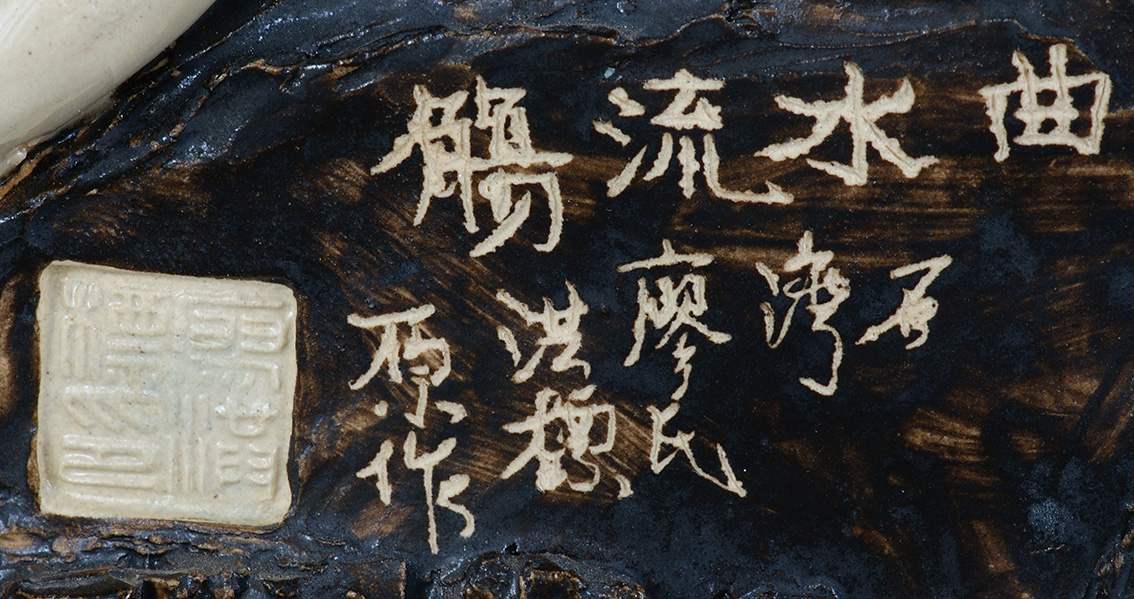 曲水流觴
石湾
廖氏
洪標
原作